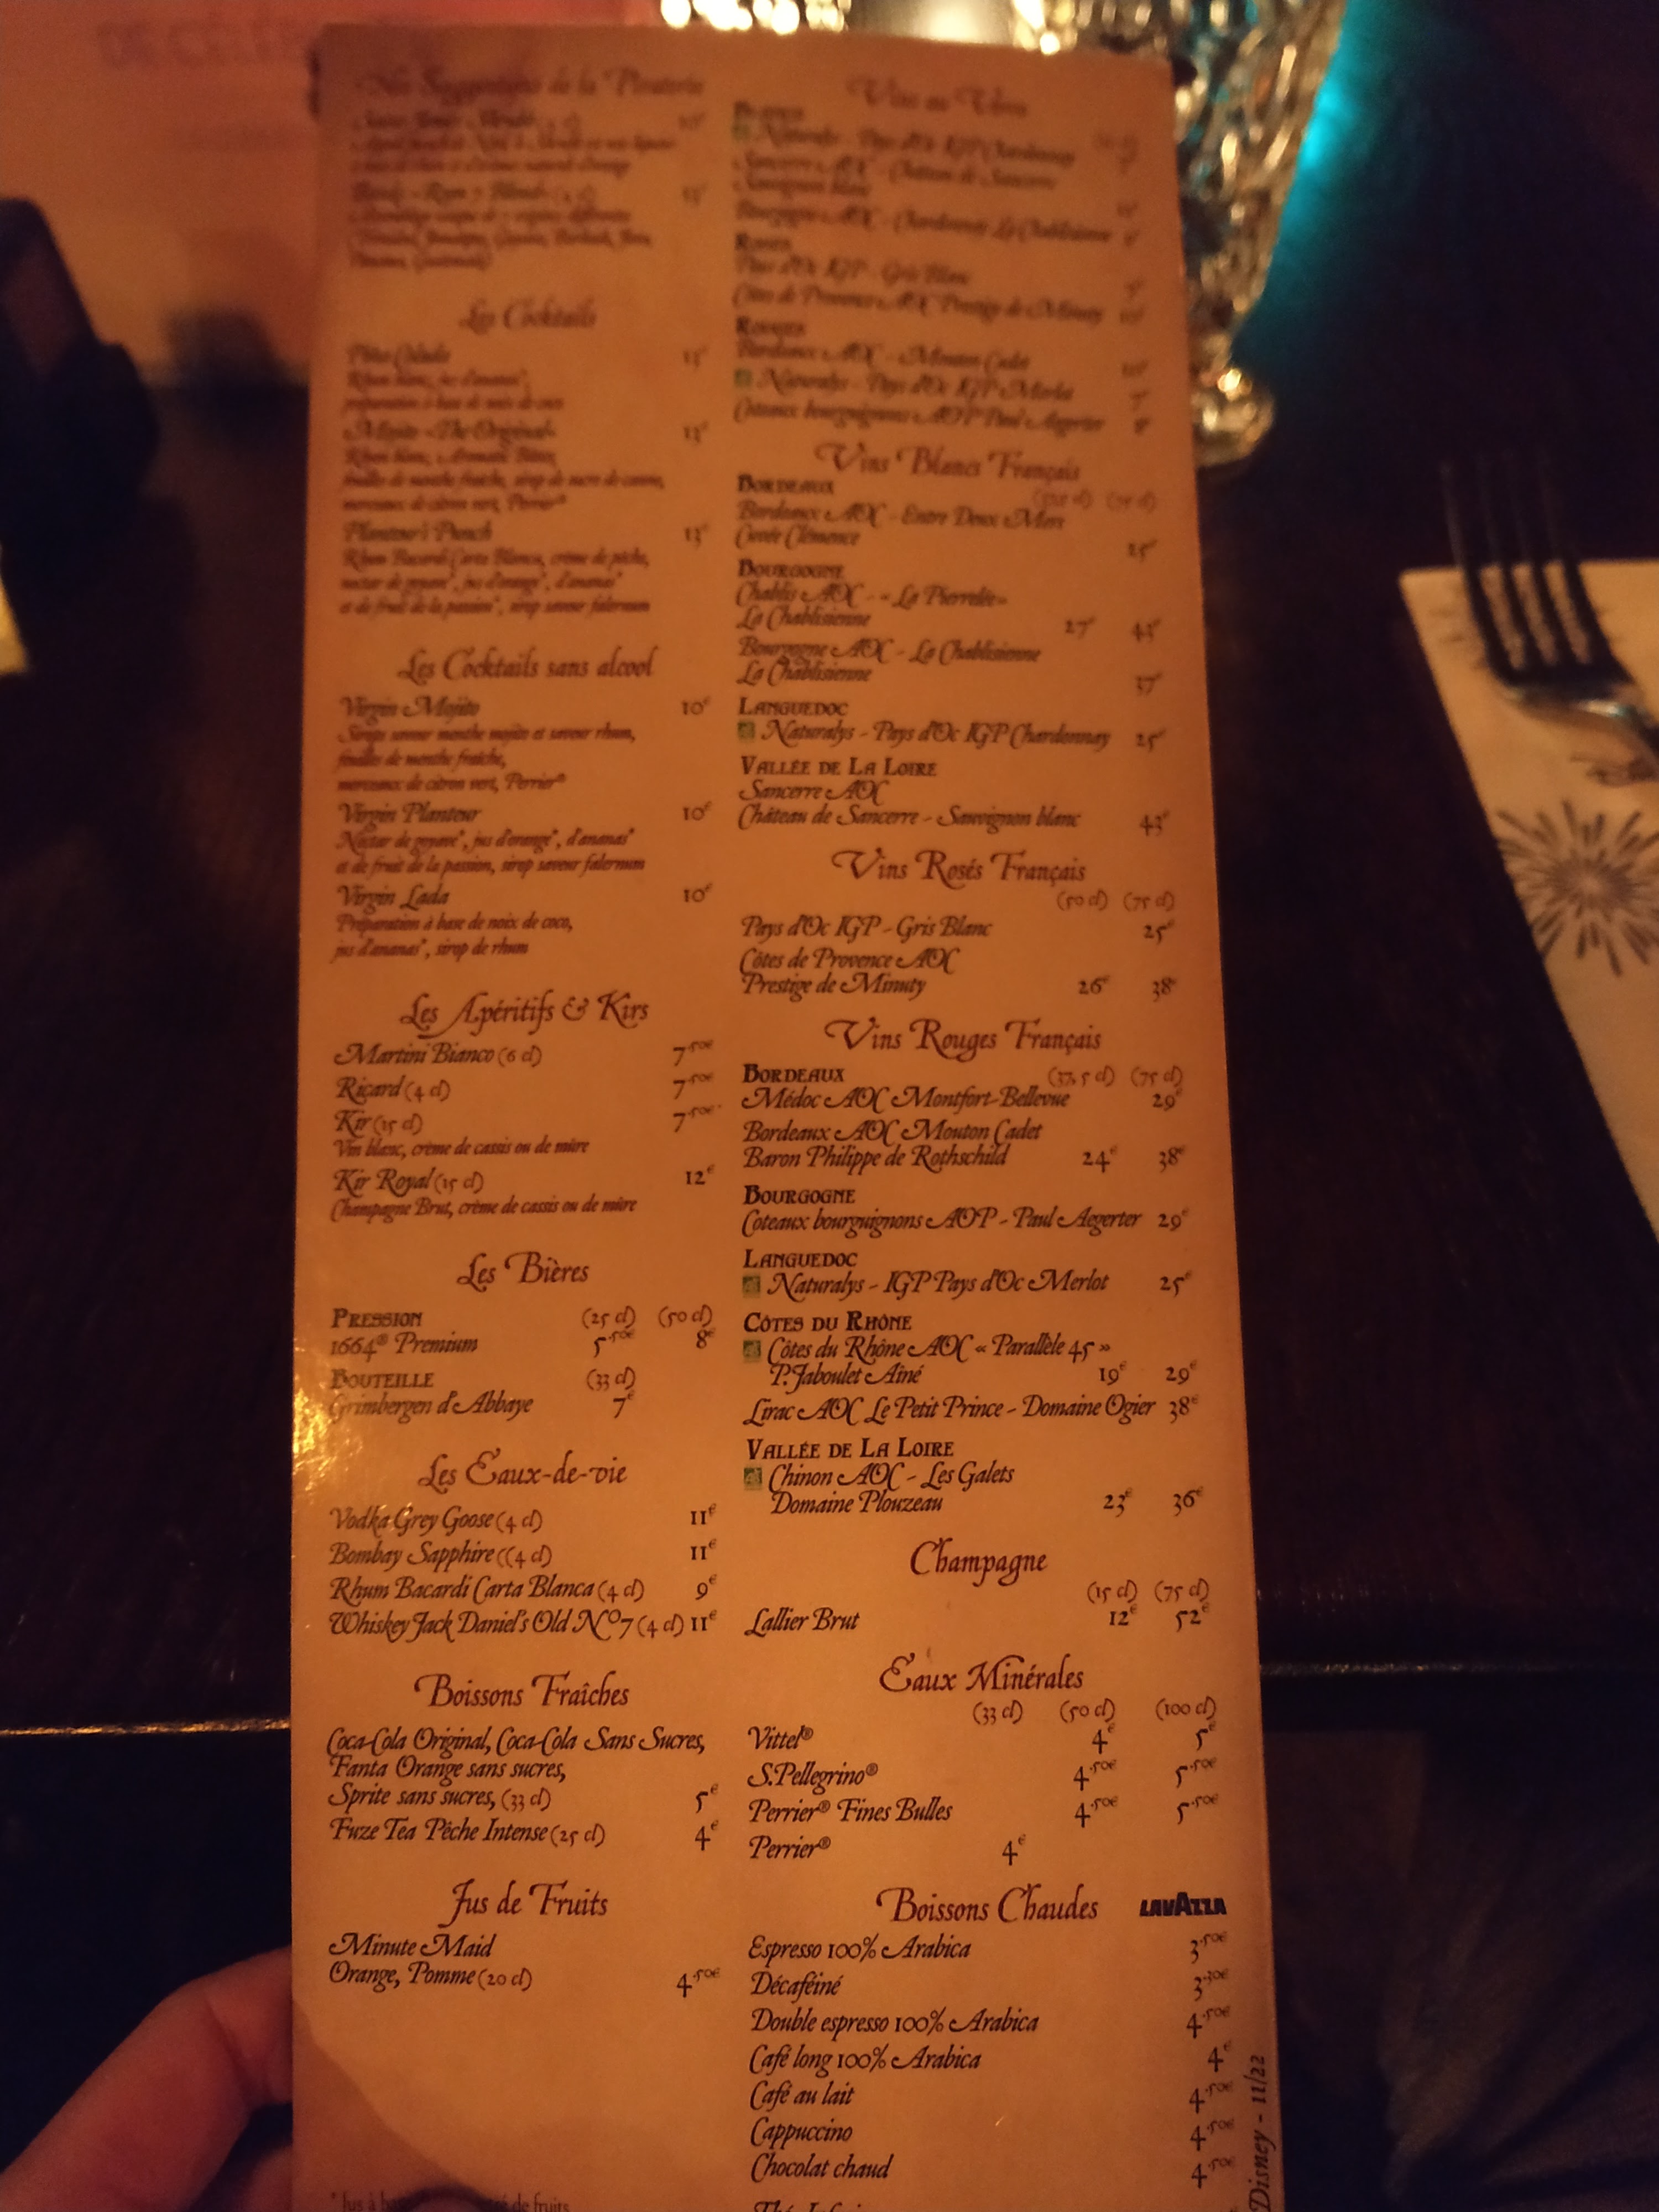 Nos Suggestions de la Piraterie
Les Cocktails
Piña Colada 13€
Rhum blanc, jus d'ananas*,
préparation à base de noix de coco
Mojito «The Original» 13€
Rhum blanc,
feuilles de menthe fraîche, sirop de sucre de canne,
morceaux de citron vert, Perrier®
Planteur's Punch 13€
Rhum Bacardi Carta Blanca, crème de pêche,
nectar de goyave*, jus d'orange*, d'ananas*
et de fruit de la passion*, sirop saveur falernum
Les Cocktails sans alcool
Virgin Mojito 10€
Sirops saveur menthe mojito et saveur rhum,
feuilles de menthe fraîche,
morceaux de citron vert, Perrier®
Virgin Planteur 10€
Nectar de goyave*, jus d'orange*, d'ananas*
et de fruit de la passion, sirop saveur falernum
Virgin Lada 10€
Préparation à base de noix de coco,
jus d'ananas*, sirop de rhum
Les Apéritifs & Kirs
Martini Bianco (6 cl) 7.50€
Ricard (4 cl) 7.50€
Kir (15 cl) 7.50€
Vin blanc, crème de cassis ou de mûre
Kir Royal (15 cl) 12€
Champagne Brut, crème de cassis ou de mûre
Les Bières
PRESSION (25 cl) (50 cl)
1664® Premium 5.50€ 8€
BOUTEILLE (33 cl)
Grimbergen d'Abbaye 7€
Les Eaux-de-vie
Vodka Grey Goose (4 cl) 11€
Bombay Sapphire ((4 cl) 11€
Rhum Bacardi Carta Blanca (4 cl) 9€
Whiskey Jack Daniel's Old N°7 (4 cl) 11€
Boissons Fraîches
Coca-Cola Original, Coca-Cola Sans Sucres,
Fanta Orange sans sucres,
Sprite sans sucres, (33 cl) 5€
Fuze Tea Pêche Intense (25 cl) 4€
Jus de Fruits
Minute Maid
Orange, Pomme (20 cl) 4.50€
* Jus à
de fruits
Vins au Verre
Naturalys - Pays d'Oc IGP Chardonnay
Sancerre AOC - Château de Sancerre
Sauvignon blanc
Bourgogne AOC - Chardonnay La Chablisienne
ROSÉS
Pays d'Oc IGP - Gris Blanc
Côtes de Provence AOC Prestige de Minuty
ROUGES
Bordeaux AOC - Mouton Cadet
Naturalys - Pays d'Oc IGP Merlot
Coteaux bourguignons AOP Paul Aegerter
Vins Blancs Français
BORDEAUX (37,5 cl) (75 cl)
Bordeaux AOC - Entre Deux Mers
Cuvée Clémence 25€
BOURGOGNE
Chablis AOC - «La Pierrelée»
La Chablisienne 27€ 43€
Bourgogne AOC - La Chablisienne
La Chablisienne 37€
LANGUEDOC
Naturalys - Pays d'Oc IGP Chardonnay 25€
VALLÉE DE LA LOIRE
Sancerre AOC
Château de Sancerre - Sauvignon blanc 43€
Vins Rosés Français
(50 cl) (75 cl)
Pays d'Oc IGP - Gris Blanc 25€
Côtes de Provence AOC
Prestige de Minuty 26€ 38€
Vins Rouges Français
BORDEAUX (37,5 cl) (75 cl)
Médoc AOC Montfort-Bellevue 29€
Bordeaux AOC Mouton Cadet
Baron Philippe de Rothschild 24€ 38€
BOURGOGNE
Coteaux bourguignons AOP - Paul Aegerter 29€
LANGUEDOC
Naturalys - IGP Pays d'Oc Merlot 25€
CÔTES DU RHÔNE
Côtes du Rhône AOC « Parallèle 45 »
P. Jaboulet Aîné 19€ 29€
Lirac AOC Le Petit Prince - Domaine Ogier 38€
VALLÉE DE LA LOIRE
Chinon AOC - Les Galets
Domaine Plouzeau 23€ 36€
Champagne
(15 cl) (75 cl)
Lallier Brut 12€ 52€
Eaux Minérales
(33 cl) (50 cl) (100 cl)
Vittel® 4€ 5€
S.Pellegrino® 4.50€ 5.50€
Perrier® Fines Bulles 4.50€ 5.50€
Perrier® 4€
Boissons Chaudes LAVAZZA
Espresso 100% Arabica 3.50€
Décaféiné 3.30€
Double espresso 100% Arabica 4.50€
Café long 100% Arabica 4€
Café au lait 4.50€
Cappuccino 4.50€
Chocolat chaud 4.50€
Disney - 11/22